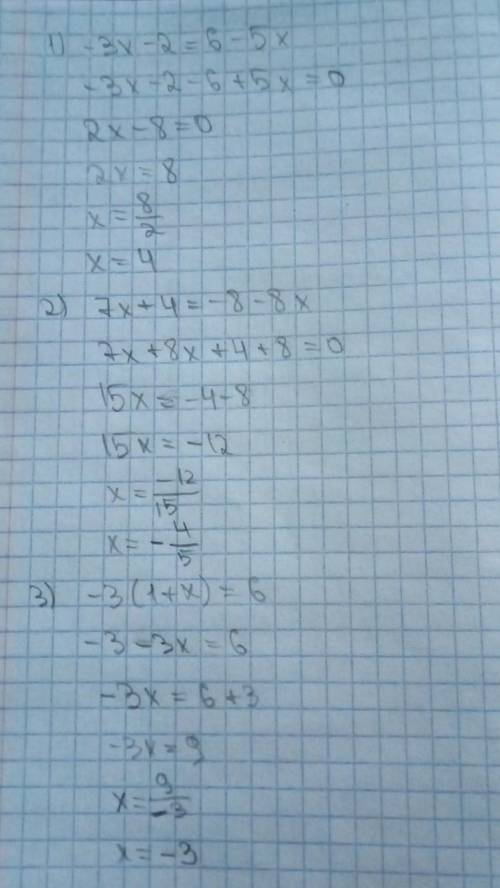 1) -3x-2=6-5x
-3x-2-6+5x=0
2x-8=0
2x=8
x=8/2
x=4
2) 7x+4=-8-8x
7x+8x+4+8=0
15x=-4-8
15x=-12
x=-12/15
x=-4/5
3) -3(1+x)=6
-3-3x=6
-3x=6+3
-3x=9
x=9/-3
x=-3